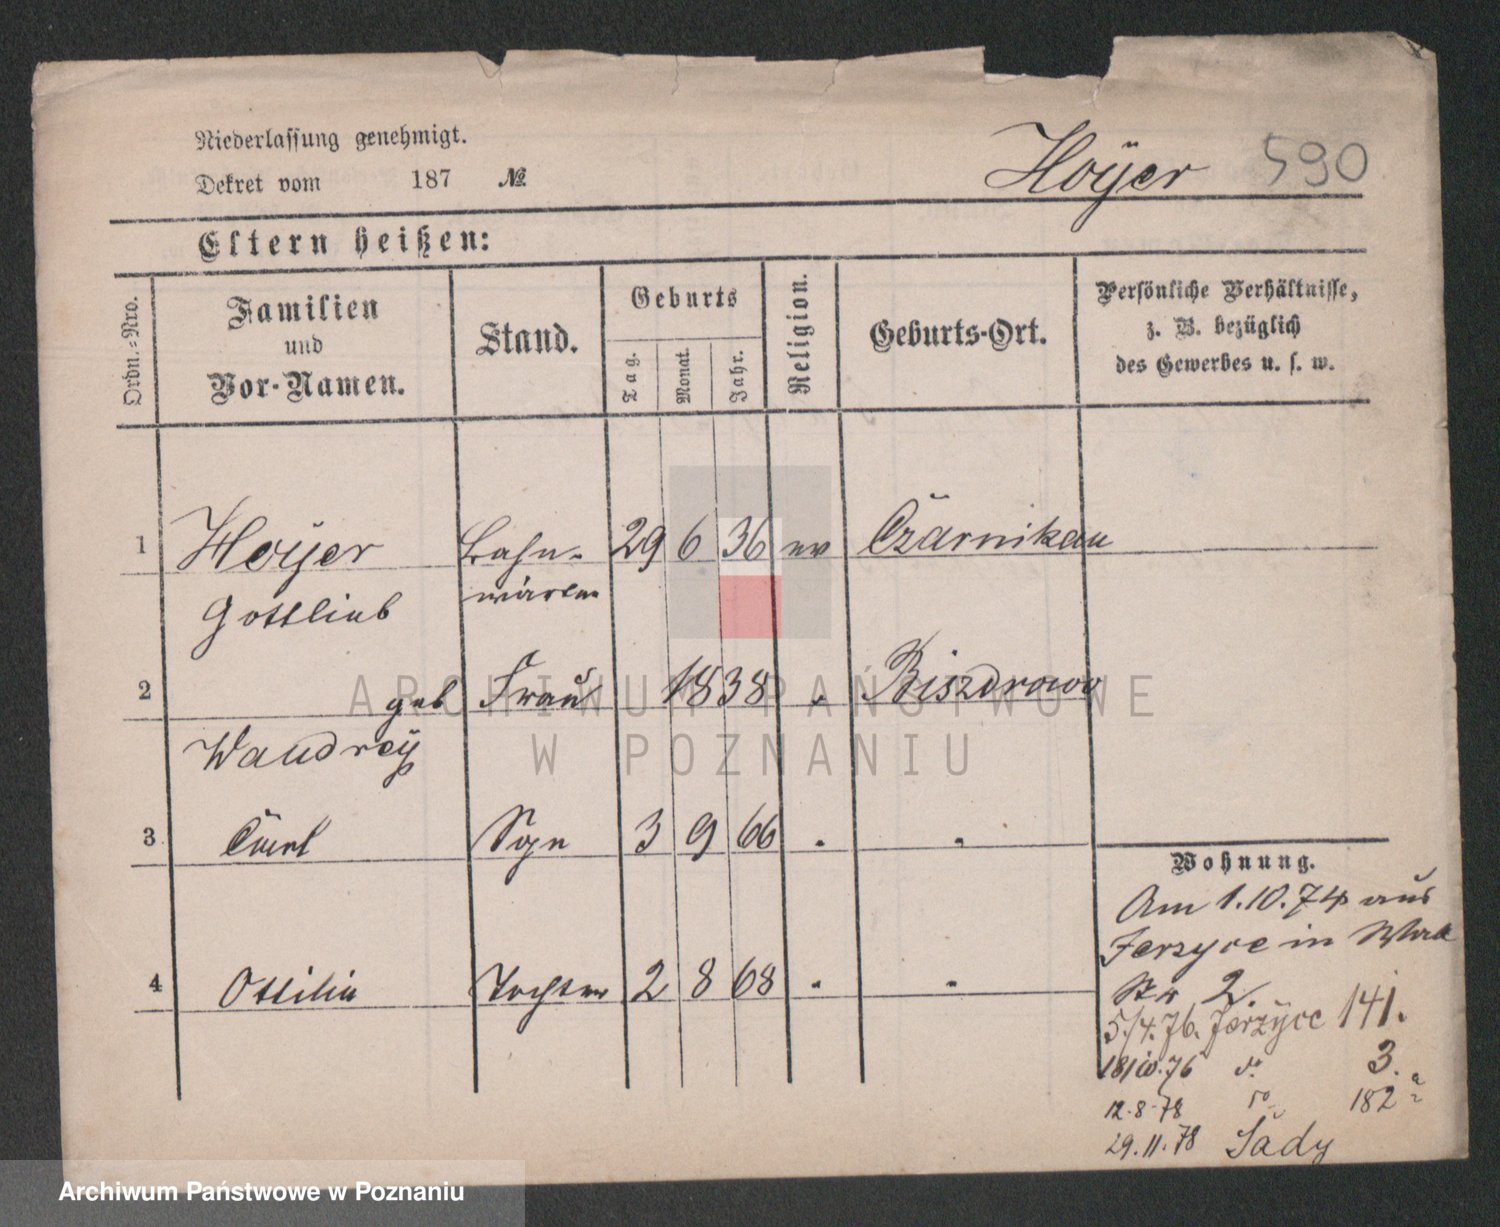 Niederlassung genehmigt.
Dekret vom 187 №
Hoÿer 590
Eltern heißen:
Ordn.-Nro.
Familien
und
Vor-Namen.
Stand.
Geburts
Tag.
Monat.
Jahr.
Religion.
Geburts-Ort.
Persönliche Verhältnisse,
z. B. bezüglich
des Gewerbes u. s. w.
1 Hoÿer Bahn- 29 6 36 ev Czarnikau
Gottlieb wärter
2 geb Frau 1838 " Biszdrowo
Waudreÿ
3 Carl Sohn 3 9 66 " "
4 Ottilie Tochter 2 8 68 " "
Wohnung.
Am 1.10.74 aus
Jerzyce in
Str 2
5/4.76. Jerzyce 141.
18/10.76 do. 3.
12.8.78 do 182a
29.11.78 Sady
ARCHIWUM PAŃSTWOWE
W POZNANIU
Archiwum Państwowe w Poznaniu